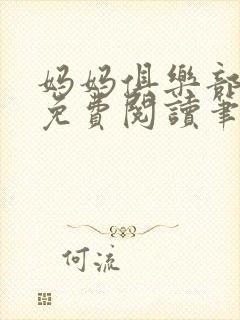 媽媽俱樂部
免費閱讀筆
何流